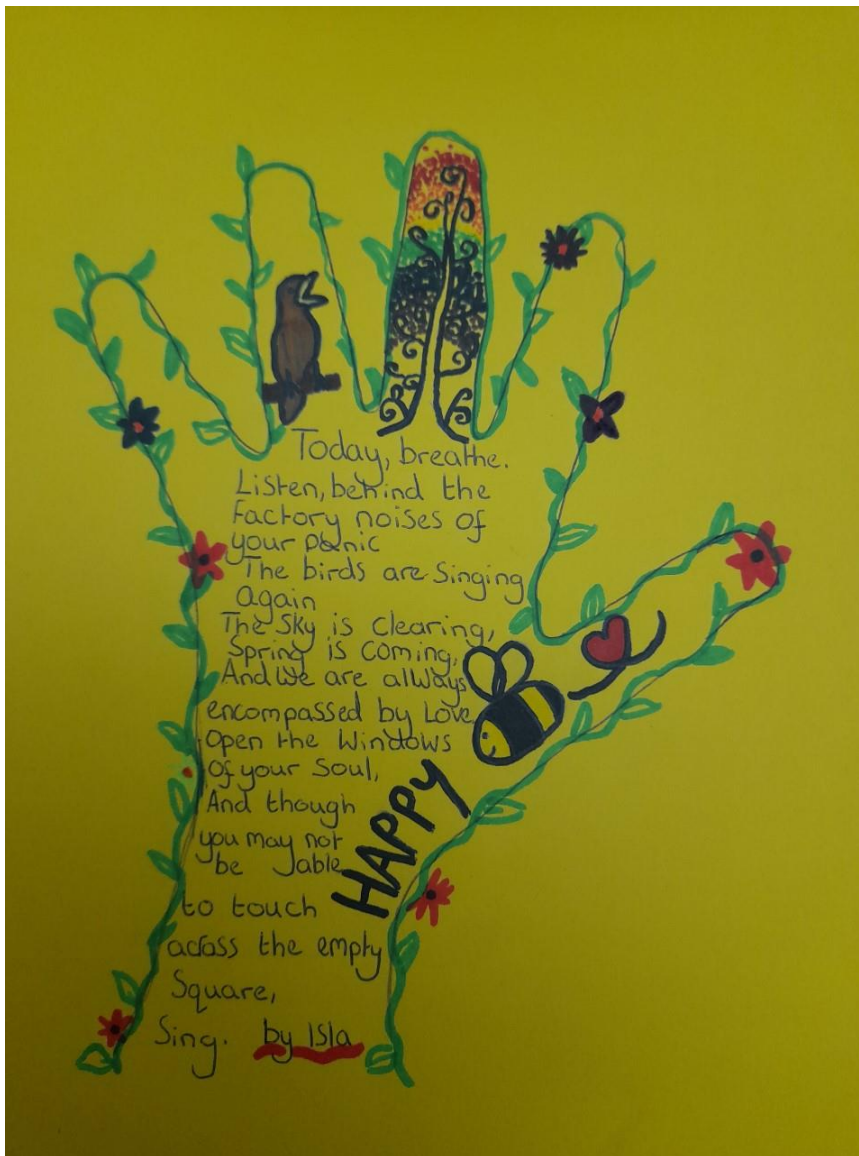 Today, breathe.
Listen, behind the
Factory noises of
your panic
The birds are Singing
again
The Sky is Clearing,
Spring is Coming,
And we are always
encompassed by Love
Open the Windows
Of your Soul,
And though
you may not
be able
to touch
across the empty
Square,
Sing. by Isla
HAPPY